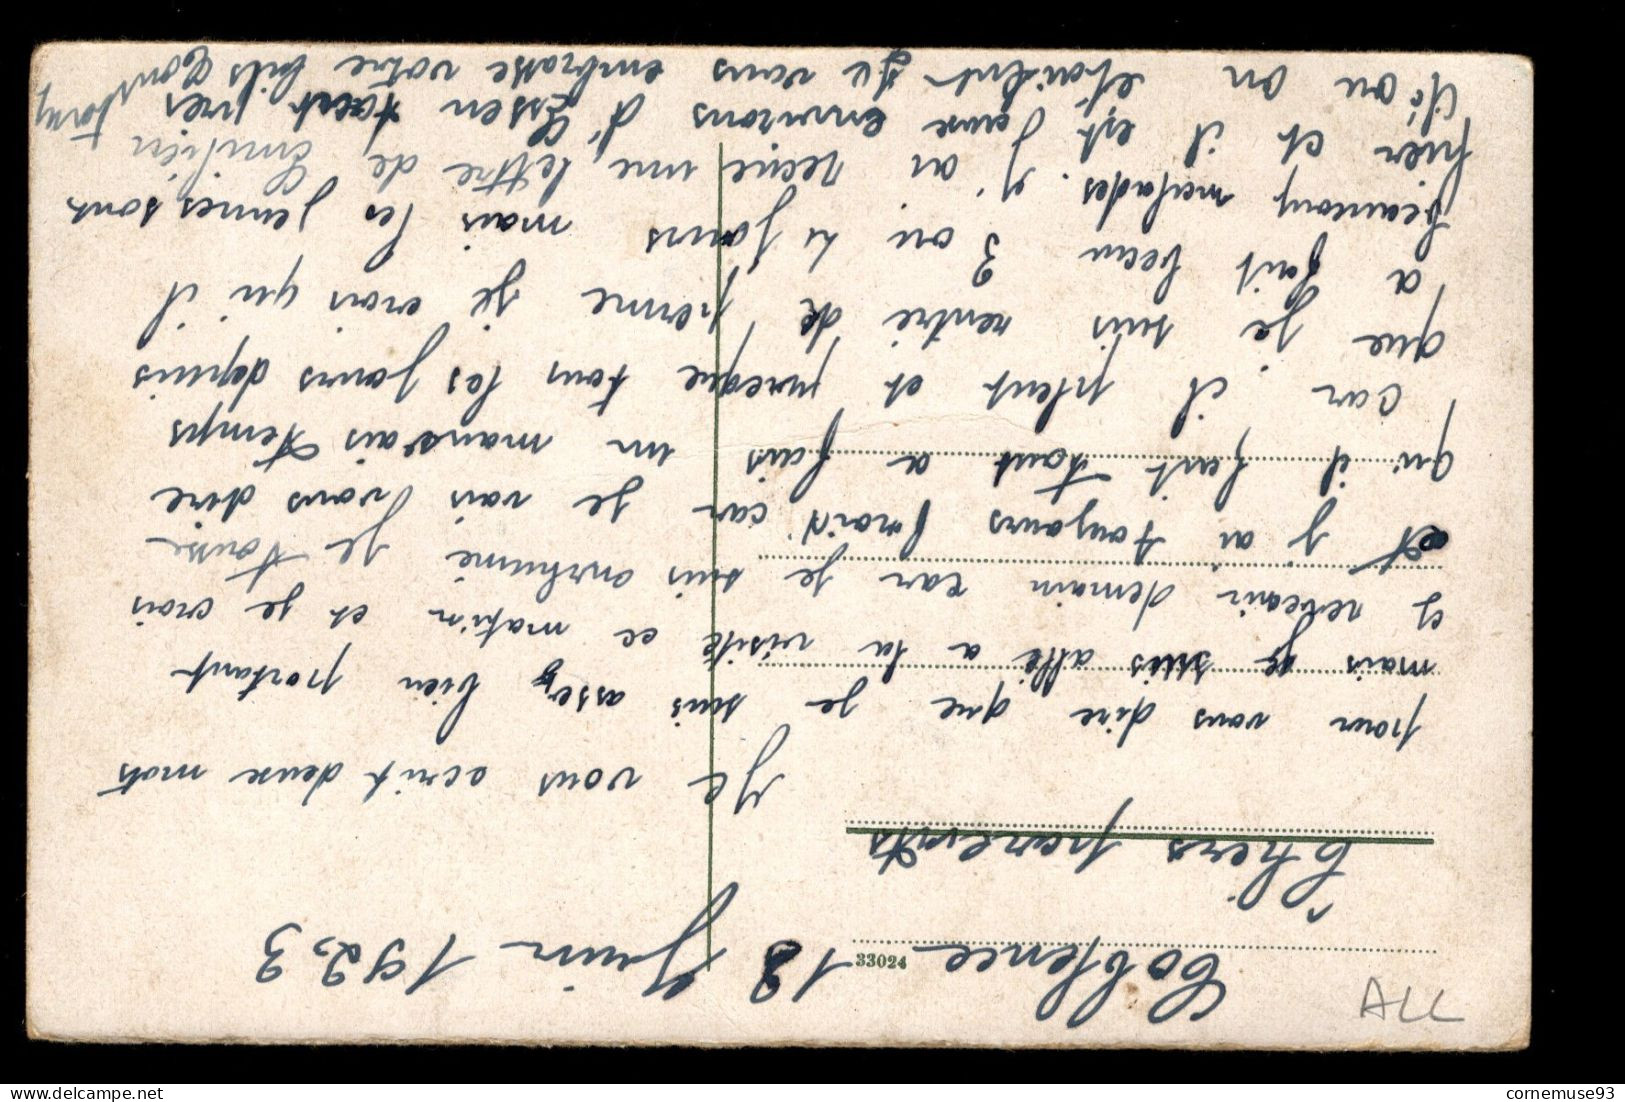 Coblence 13 Juin 1923
Chers parents
Je vous acrit deux mots
pour vous dire que je suis assez bien portant
mais je suis allé a la visite ce matin et je crois
y retcanir demain car je suis enrhumé je tousse
et j'ai toujours froid car je vais vous dire
qu'il fait tout a fais un mauvais temps
car il pleut et presque tous les jours depuis
que je suis rentré de perme je crois qu'il
a fait beau 3 ou 4 jours mais les jeunes sont
beaucoup malades. j'ai reçue une lettre de Emilien
hier et il est dans environs d'Essen tout pres
d'ou on etaient Je vous embrasse votre fils Gonstant
33024
ALL
cornemuse93